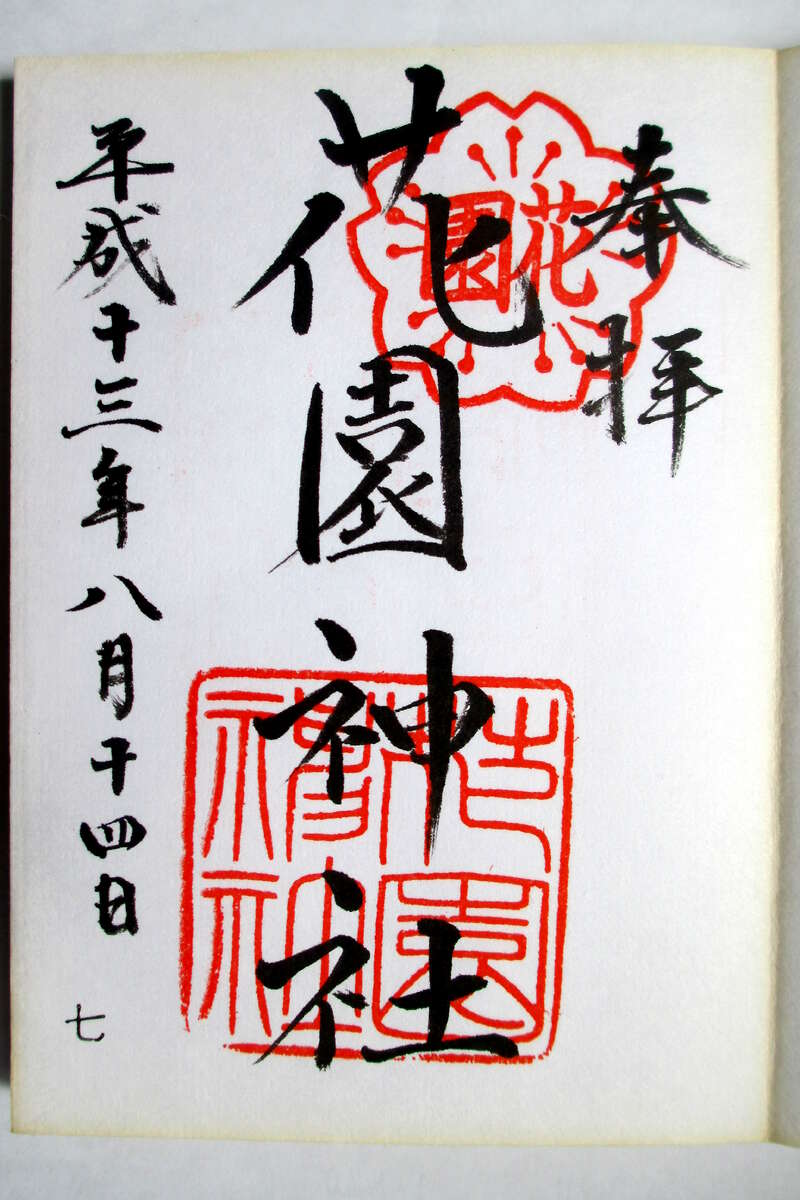 奉拝
花園
花園神社
花園神社
平成十三年八月十四日
七